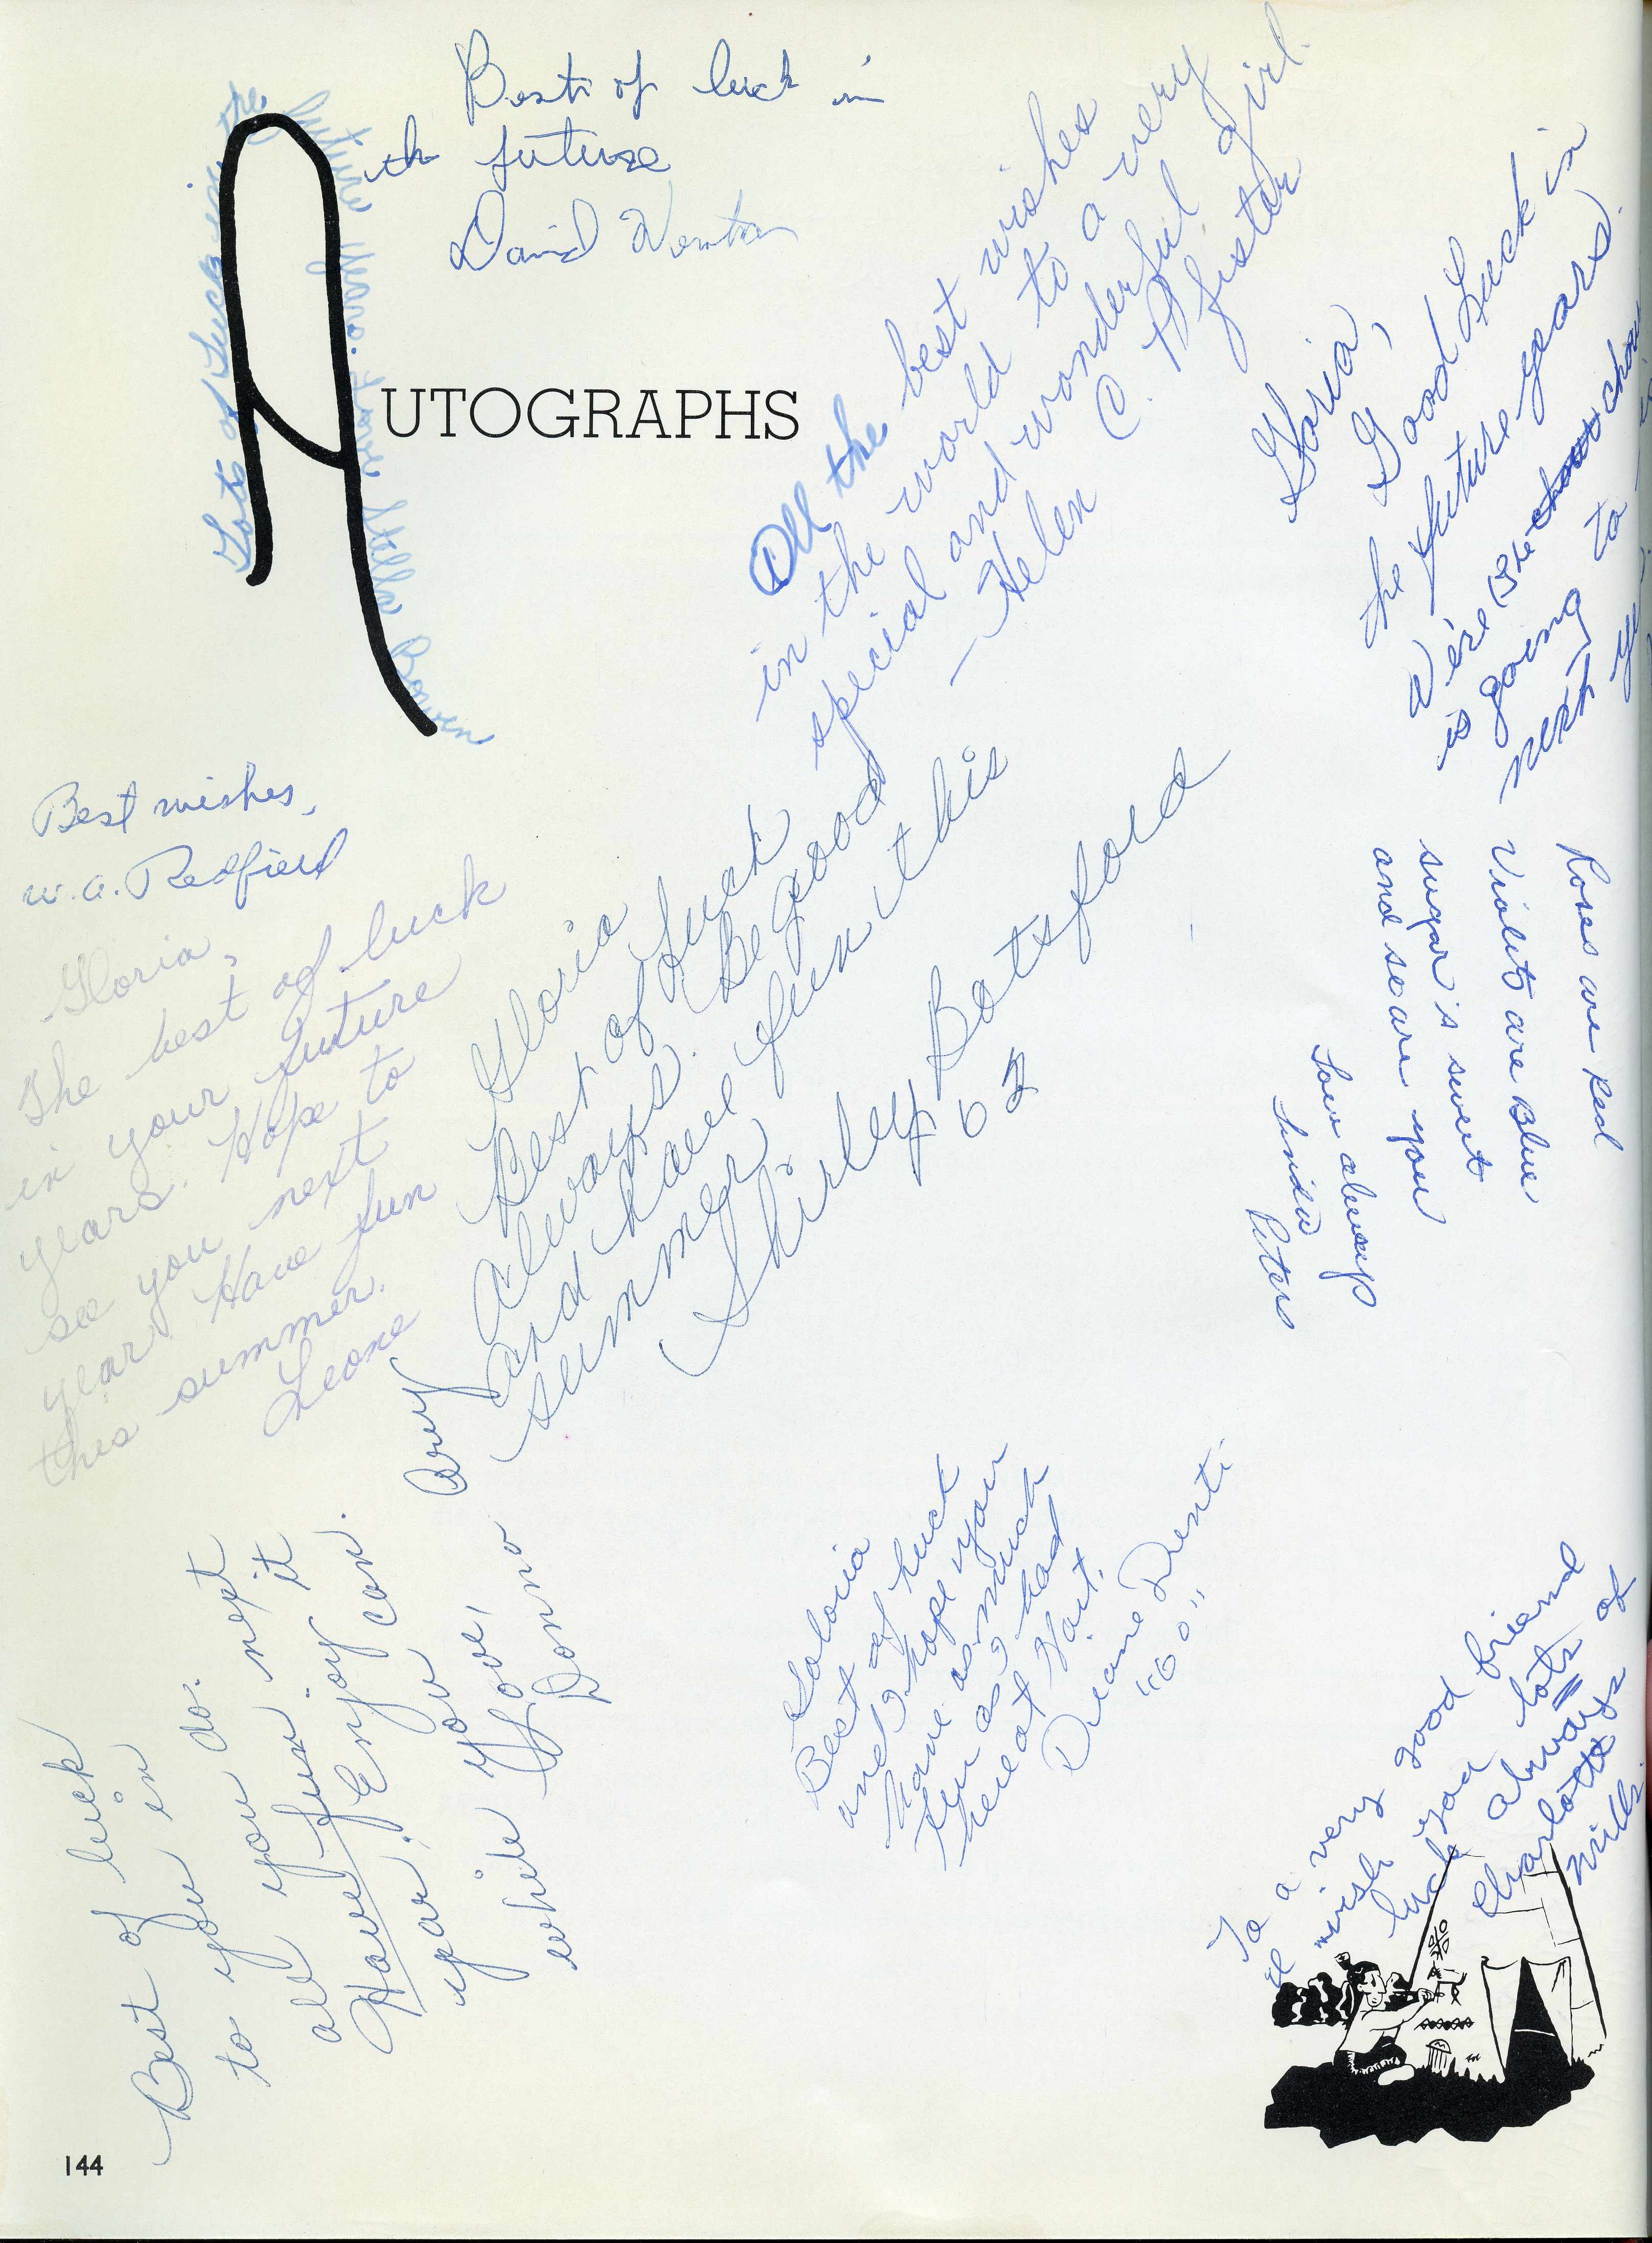 Best of luck in
the future
David Newton
AUTOGRAPHS
Lots of Luck in the
future years.
Stella Bowen
All the best wishes
in the world to a very
special and wonderful girl.
—Helen C. Pfister
Gloria,
Good Luck in
the future years.
We're (the chow
is going to
next
Best wishes,
W. A. Redfield
Gloria,
The best of luck
in your future
years. Hope to
see you next
year. Have fun
this summer.
Leone
Gloria
Best of Luck
always. Be good
and have fun this
summer
Shirley Botsford
62
Roses are Red
Violets are Blue
sugar's sweet
and so are you
Love always
Linda
Peters
Best of luck
to you in
all you do.
Have fun next
year. Enjoy it
while you can.
Love,
Donna
Gloria
Best of luck
and I hope you
have as much
fun as I had
here at Hart.
Diane Denti
"60"
To a very good friend
wish you lots of
luck always
Charlotte
Mills
144